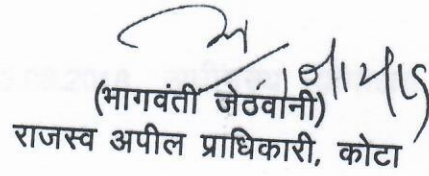 (भागवंती जेठवानी)
राजस्व अपील प्राधिकारी, कोटा